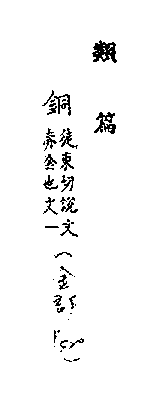 類篇
銅
徒東切說文
赤金也文一
(金部